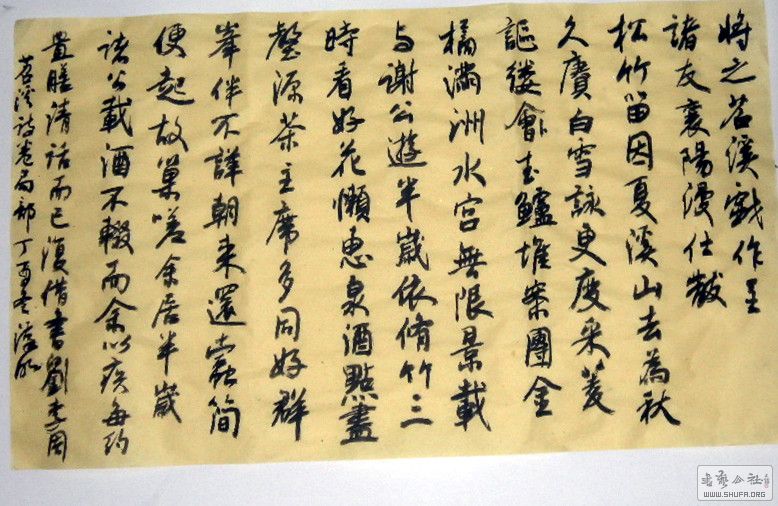 將之苕溪戲作呈
諸友襄陽漫仕黻
松竹留因夏溪山去為秋
久賡白雪詠更度采菱
謳縷會玉鱸堆案團金
橘滿洲水宮無限景載
与謝公遊半歲依脩竹三
時看好花懶惠泉酒點盡
壑源茶主席多同好群
峯伴不譁朝来還蠹簡
便起故巢嗟余居半歲
諸公載酒不輟而余以疾每約
置膳清話而已復借書劉李周
苕溪詩卷局部丁酉
书艺公社
WWW.SHUFA.ORG